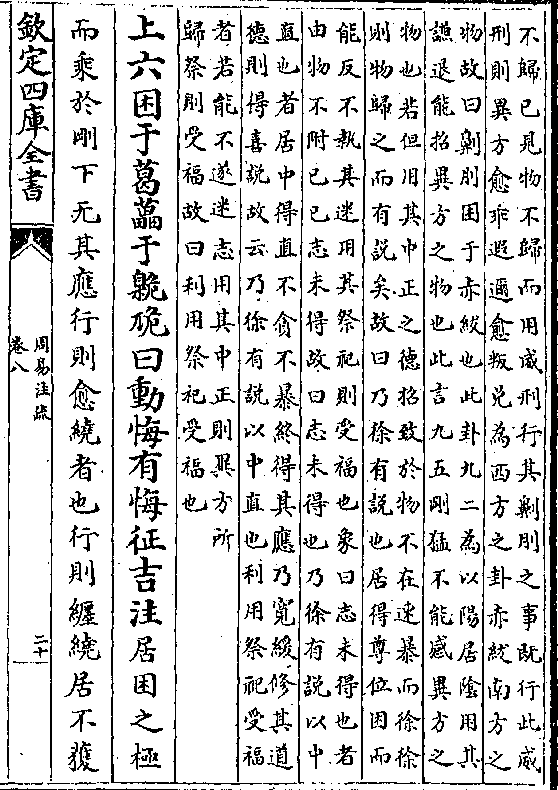 不歸已見物不歸而用威刑行其劓刖之事既行此威
刑則異方愈乖遐邇愈叛兌為西方之卦赤紱南方之
物故曰劓刖困于赤紱也此卦九二為以陽居陰用其
謙退能招異方之物也此言九五剛猛不能感異方之
物也若但用其中正之德招致於物不在速暴而徐徐
則物歸之而有説矣故曰乃徐有説也居得尊位困而
能反不執其迷用其祭祀則受福也象曰志未得也者
由物不附已已志未得故曰志未得也乃徐有説以中
直也者居中得直不貪不暴終得其應乃寛緩修其道
德則得喜説故云乃徐有説以中直也利用祭祀受福
者若能不遂迷志用其中正則異方所
歸祭則受福故曰利用祭祀受福也
上六困于葛藟于臲卼曰動悔有悔征吉注居困之極
而乘於剛下无其應行則愈繞者也行則纏繞居不獲
欽定四庫全書
周易注疏
卷八
二十